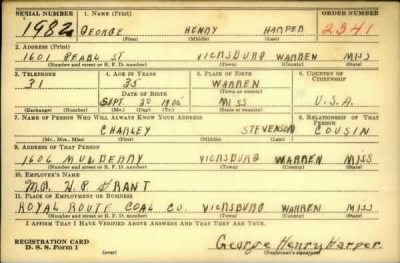 SERIAL NUMBER 1. NAME (Print) ORDER NUMBER
1982 GEORGE HENRY HARPER 2341
(First) (Middle) (Last)
2. ADDRESS (Print)
1601 PEARL ST VICKSBURG WARREN MISS
(Number and street or R. F. D. number) (Town) (County) (State)
3. TELEPHONE 4. AGE IN YEARS 5. PLACE OF BIRTH 6. COUNTRY OF CITIZENSHIP
31 35 WARREN
DATE OF BIRTH (Town or county)
SEPT. 30 1905 MISS U.S.A.
(Exchange) (Number) (Mo.) (Day) (Yr.) (State or country)
7. NAME OF PERSON WHO WILL ALWAYS KNOW YOUR ADDRESS 8. RELATIONSHIP OF THAT PERSON
CHARLEY STEVENSON COUSIN
(Mr., Mrs., Miss) (First) (Middle) (Last)
9. ADDRESS OF THAT PERSON
1606 MULBERRY VICKSBURG WARREN MISS
(Number and street or R. F. D. number) (Town) (County) (State)
10. EMPLOYER'S NAME
MR. W.P. GRANT
11. PLACE OF EMPLOYMENT OR BUSINESS
ROYAL ROUTE COAL CO. VICKSBURG WARREN MISS
(Number and street or R. F. D. number) (Town) (County) (State)
I AFFIRM THAT I HAVE VERIFIED ABOVE ANSWERS AND THAT THEY ARE TRUE.
REGISTRATION CARD
D. S. S. Form 1 George Henry Harper
(over) (Registrant's signature)